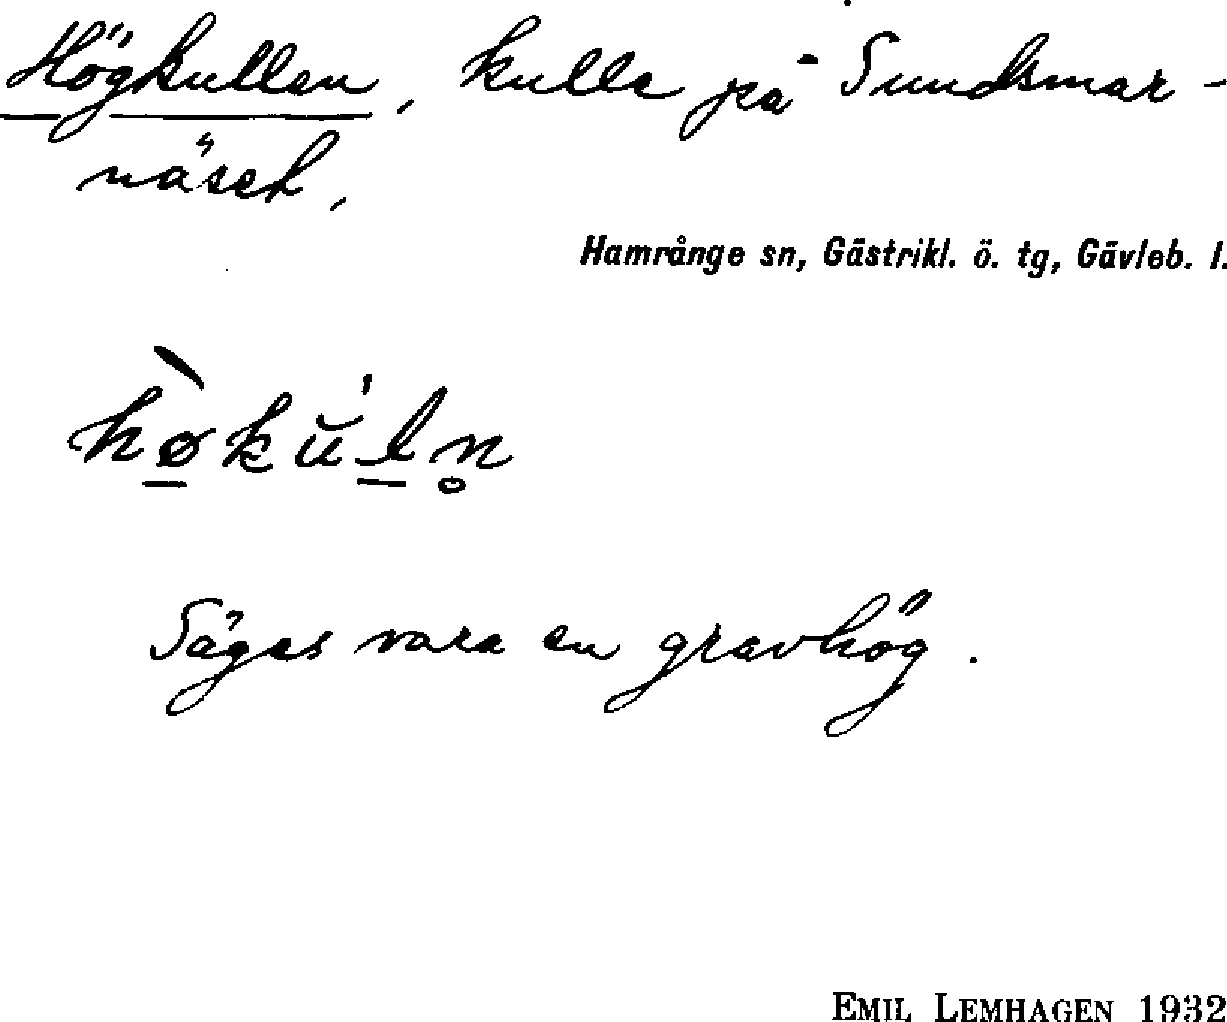 Högkullen, kulle på Sundsmar-
näset,
Hamrånge sn, Gästrikl. ö. tg, Gävleb. l.
hø̱̀kŭ́ḻn̥
Säges vara en gravhög.
EMIL LEMHAGEN 1932